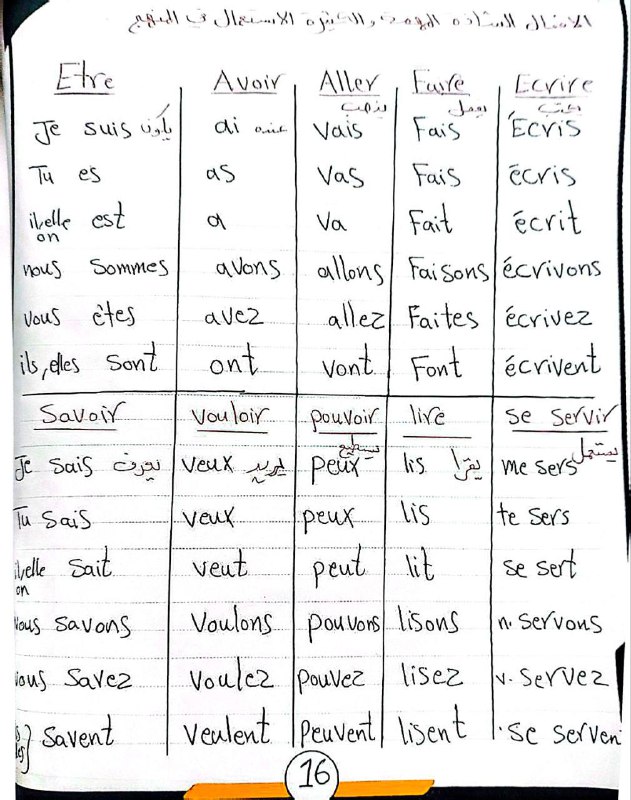 الافعال الشاذه الهامة والكثيرة الاستعمال فى المنهج
Etre Avoir Aller Faire Ecrire
يذهب يعمل يكتب
Je suis يكون ai عنده Vais Fais Écris
Tu es as Vas Fais écris
il,elle est a Va Fait écrit
on
nous sommes avons allons Faisons écrivons
vous êtes avez allez Faites écrivez
ils,elles sont ont vont Font écrivent
Savoir vouloir pouvoir lire se servir
يستطيع يستعمل
Je sais يعرف veux يريد peux lis يقرأ me sers
Tu sais veux peux lis te sers
il,elle sait veut peut lit se sert
on
nous savons Voulons pouvons lisons n. servons
vous savez voulez pouvez lisez v. servez
savent veulent peuvent lisent se serven
16